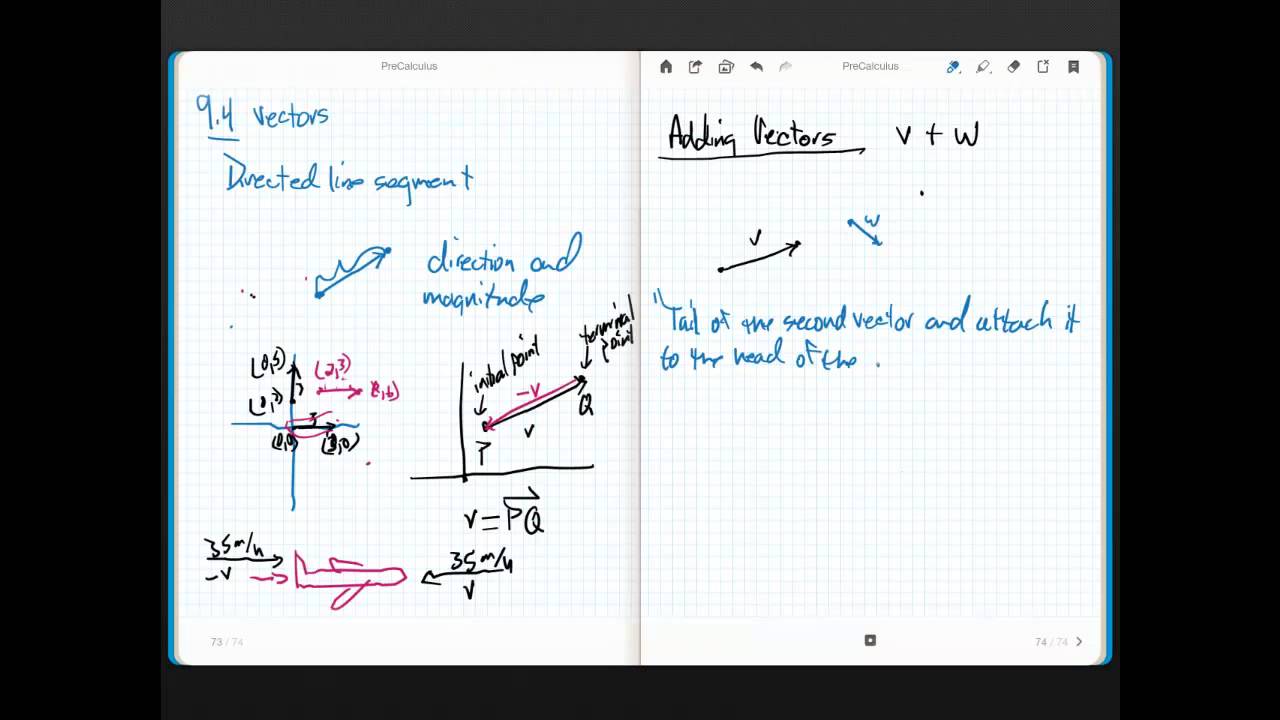 PreCalculus
9.4 Vectors
Directed line segment
direction and
magnitude
initial point
terminal
point
(0,5)
(2,3)
3
-v
Q
v
P
(0,0)
(3,0)
v = PQ
35 m/h
-v
35 m/h
v
73 / 74
PreCalculus
Adding Vectors v + w
v
w
1) Tail of the second vector and attach it
to the head of the
74 / 74